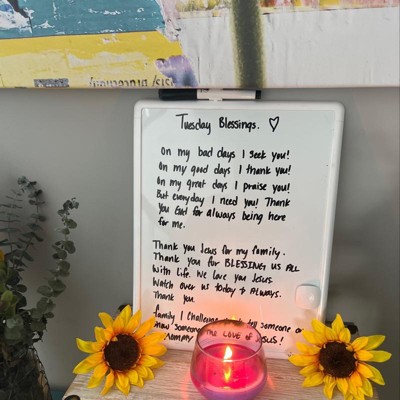 Tuesday Blessings. ♡
On my bad days I seek you!
On my good days I thank you!
On my great days I praise you!
But everyday I need you! Thank
you God for always being here
for me.
Thank you Jesus for my family.
Thank you for BLESSING US ALL
With life. We love you Jesus.
Watch over us today & ALWAYS.
Thank you.
Family I challenge to tell someone or
THE LOVE OF Jesus!